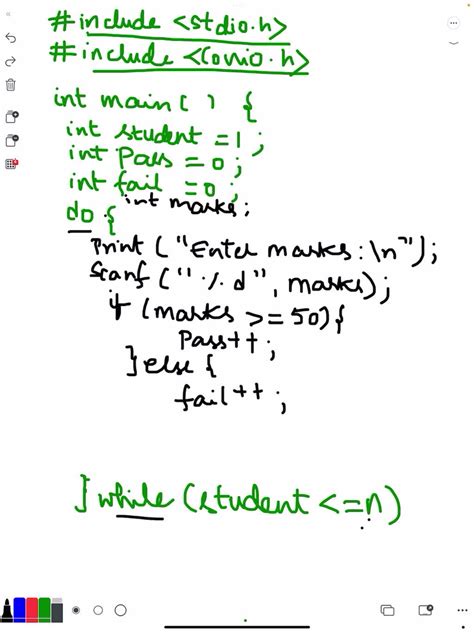 #include <stdio.h>
#include <Conio.h>
int main( ) {
int student = 1;
int Pass = 0;
int fail = 0;
int marks;
do {
Print ("Enter marks:\n");
Scanf ("%d", marks);
if (marks >= 50) {
Pass++;
} else {
fail++;
} while (student <= n)